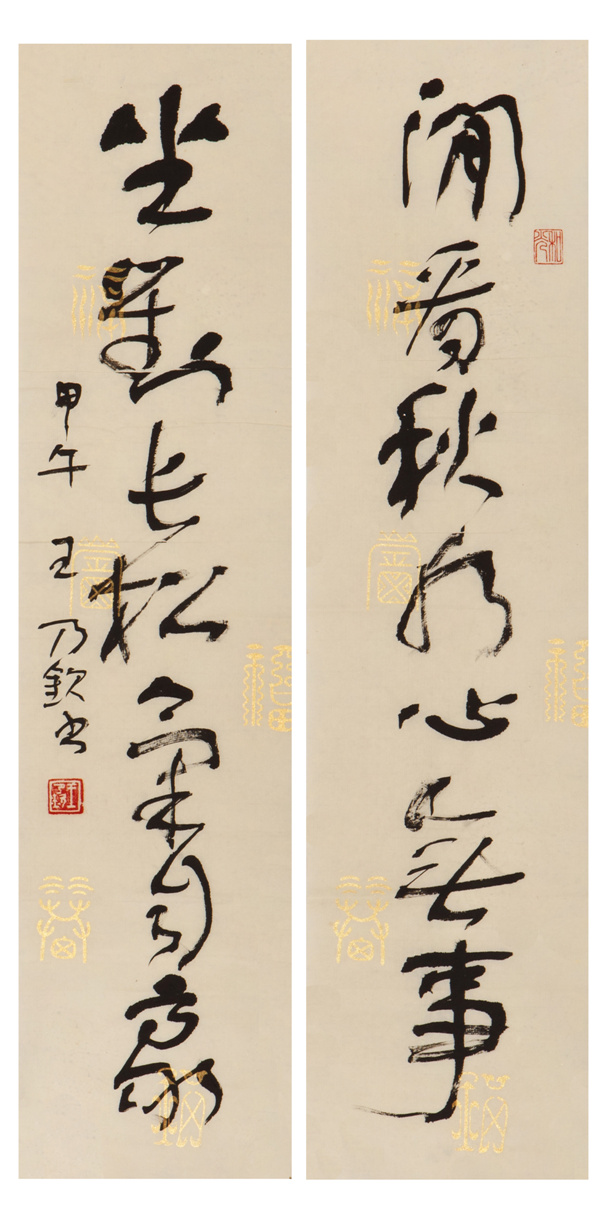 閒看秋水心無事
坐對長松氣自豪
甲午 王乃欽書